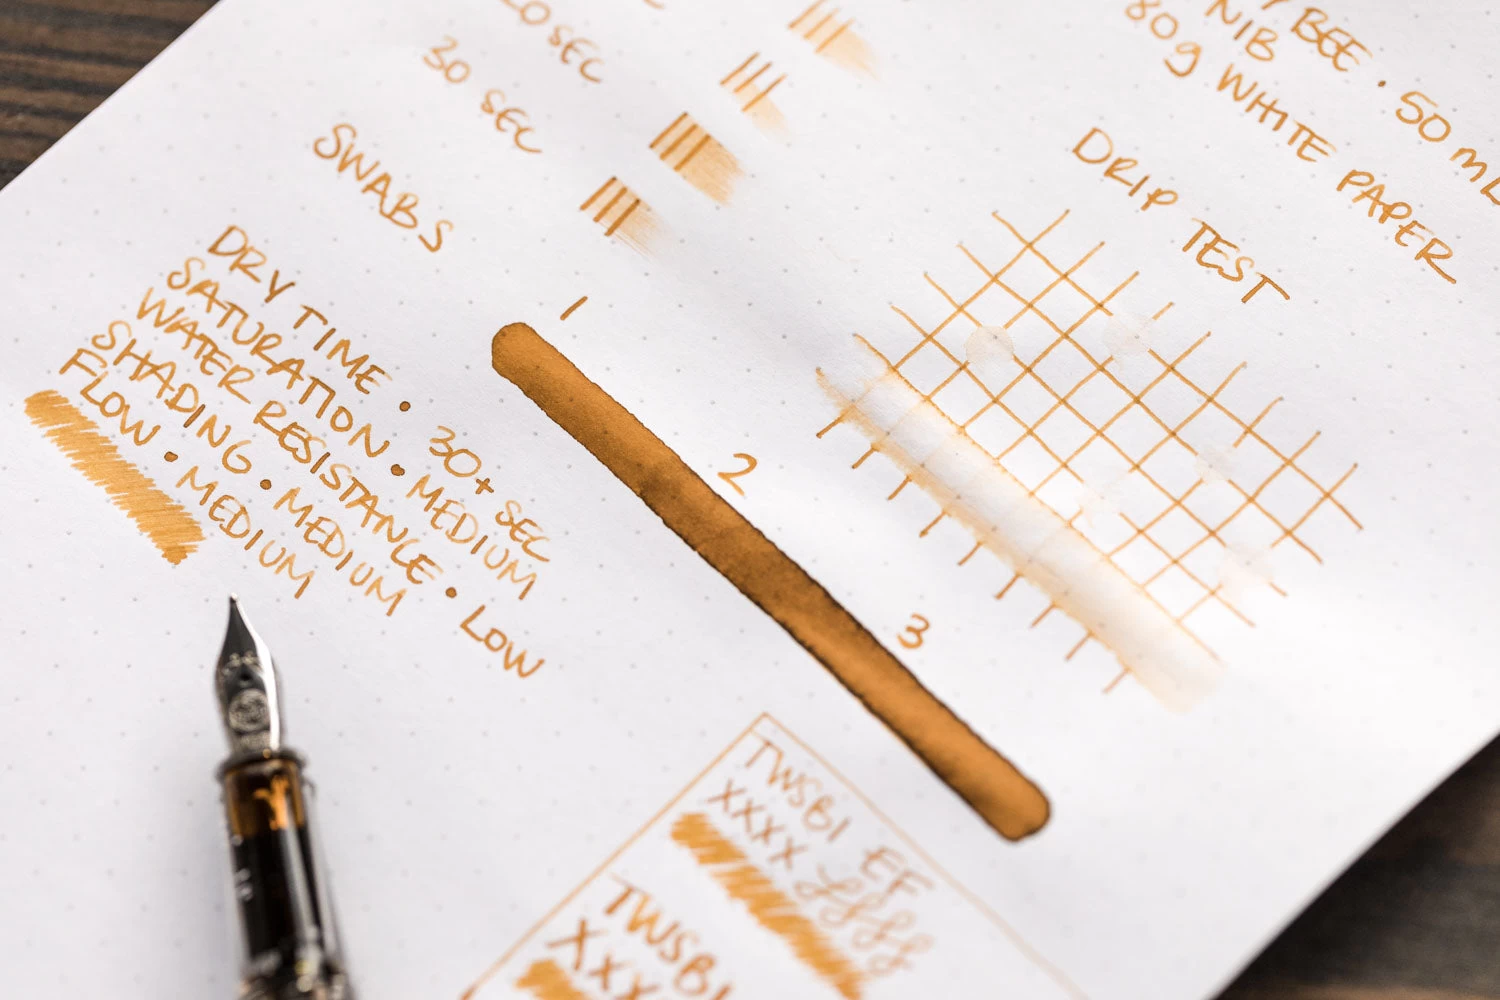 BEE · 50 ML
NIB
80g WHITE PAPER
20 SEC
30 SEC
SWABS
DRIP TEST
1
2
3
DRY TIME · 30+ SEC
SATURATION · MEDIUM
WATER RESISTANCE · LOW
SHADING · MEDIUM
FLOW · MEDIUM
TWSBI EF
XXXX
TWSBI
XXX